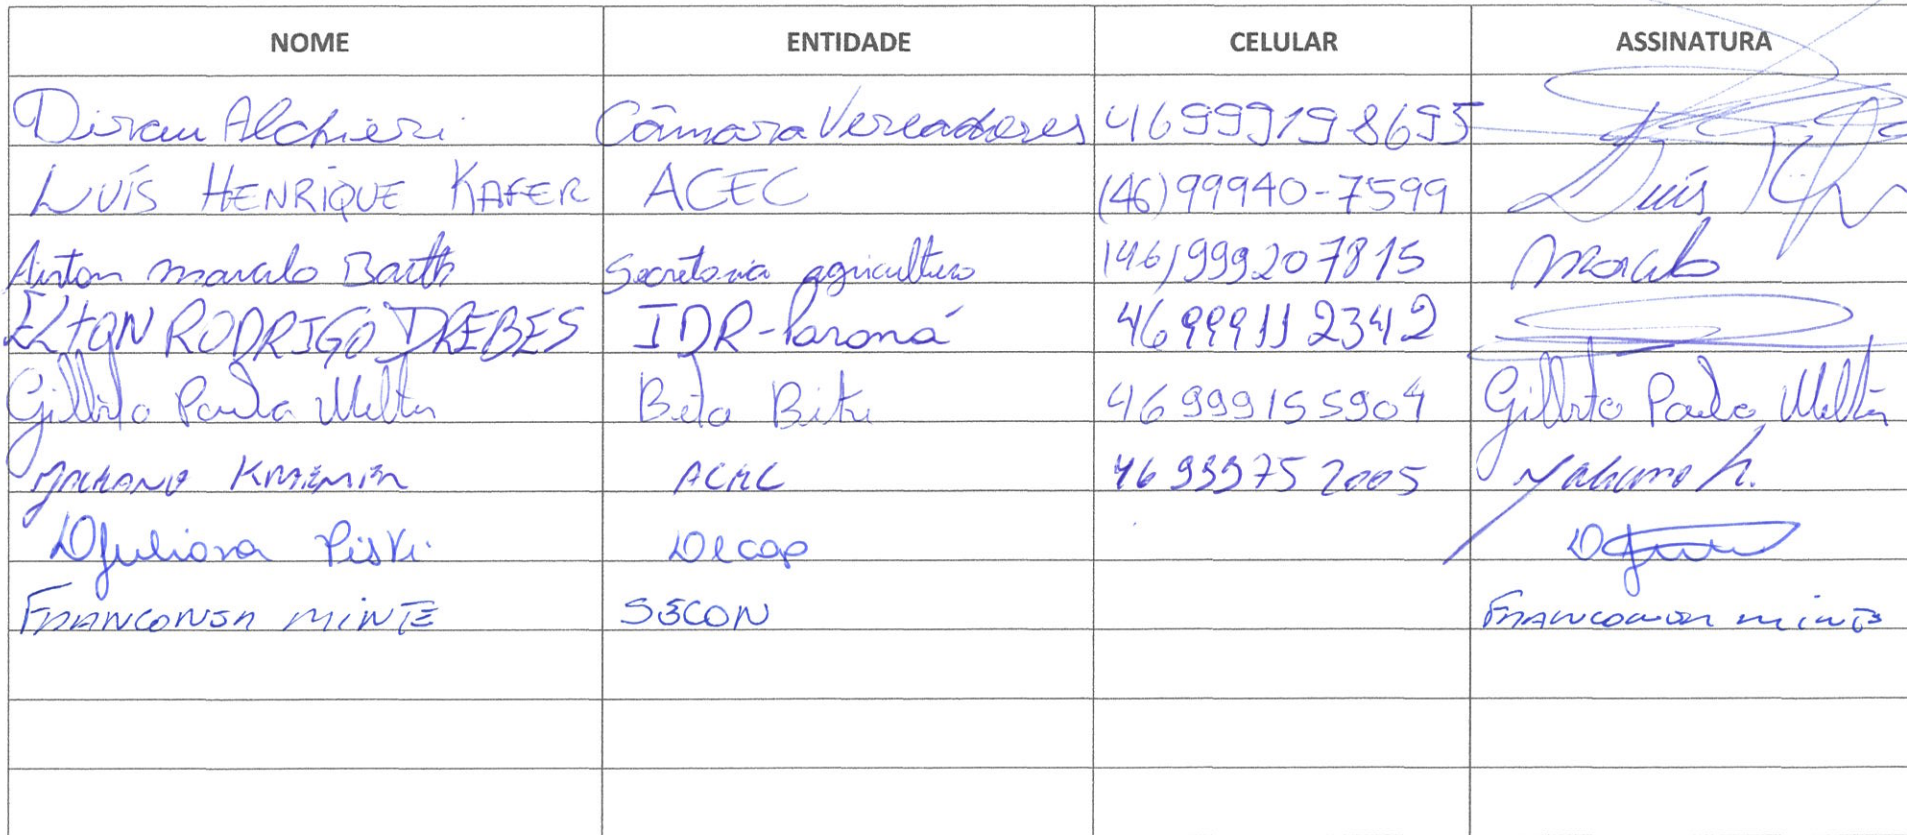 NOME ENTIDADE CELULAR ASSINATURA
Dirceu Alchieri Câmara Vereadores 46999198695
LUÍS HENRIQUE KAFER ACEC (46)99940-7599 Luís
Airton Marcelo Barth Secretaria agricultura (46)999207815 Marcelo
ELTON RODRIGO DREBES IDR-Paraná 46999112342
Gilberto Paulo Welter Beto Bike 46999155904 Gilberto Paulo Welter
46999752005
Djuliana Piski Decop
MINTE SECON MINTE